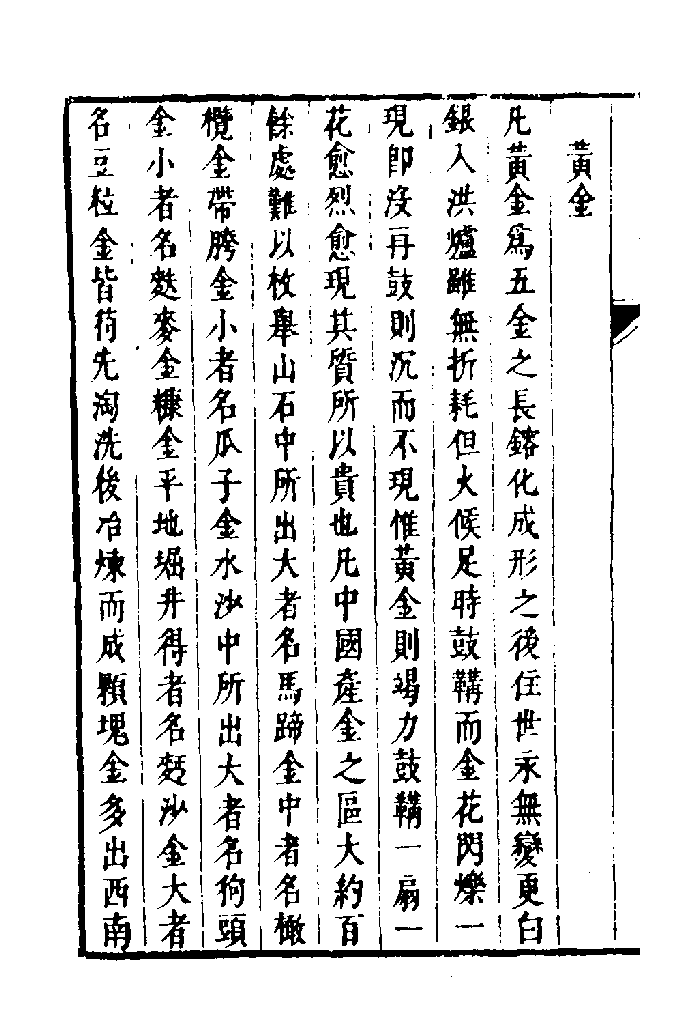 黃金
凡黃金爲五金之長鎔化成形之後住世永無變更白
銀入洪爐雖無折耗但火候足時鼓鞲而金花閃爍一
現卽沒再鼓則沉而不現惟黃金則竭力鼓鞲一扇一
花愈烈愈現其質所以貴也凡中國產金之區大約百
餘處難以枚舉山石中所出大者名馬蹄金中者名橄
欖金帶胯金小者名瓜子金水沙中所出大者名狗頭
金小者名麩麥金糠金平地堀井得者名麪沙金大者
名豆粒金皆待先淘洗後冶煉而成顆塊金多出西南